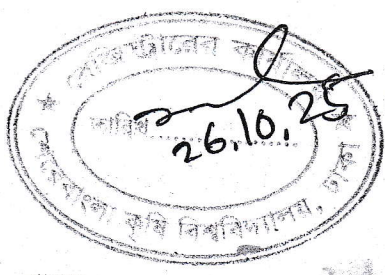 রেজিস্ট্রারের কার্যালয়
তারিখ..................
26.10.25
শেরেবাংলা কৃষি বিশ্ববিদ্যালয়, ঢাকা